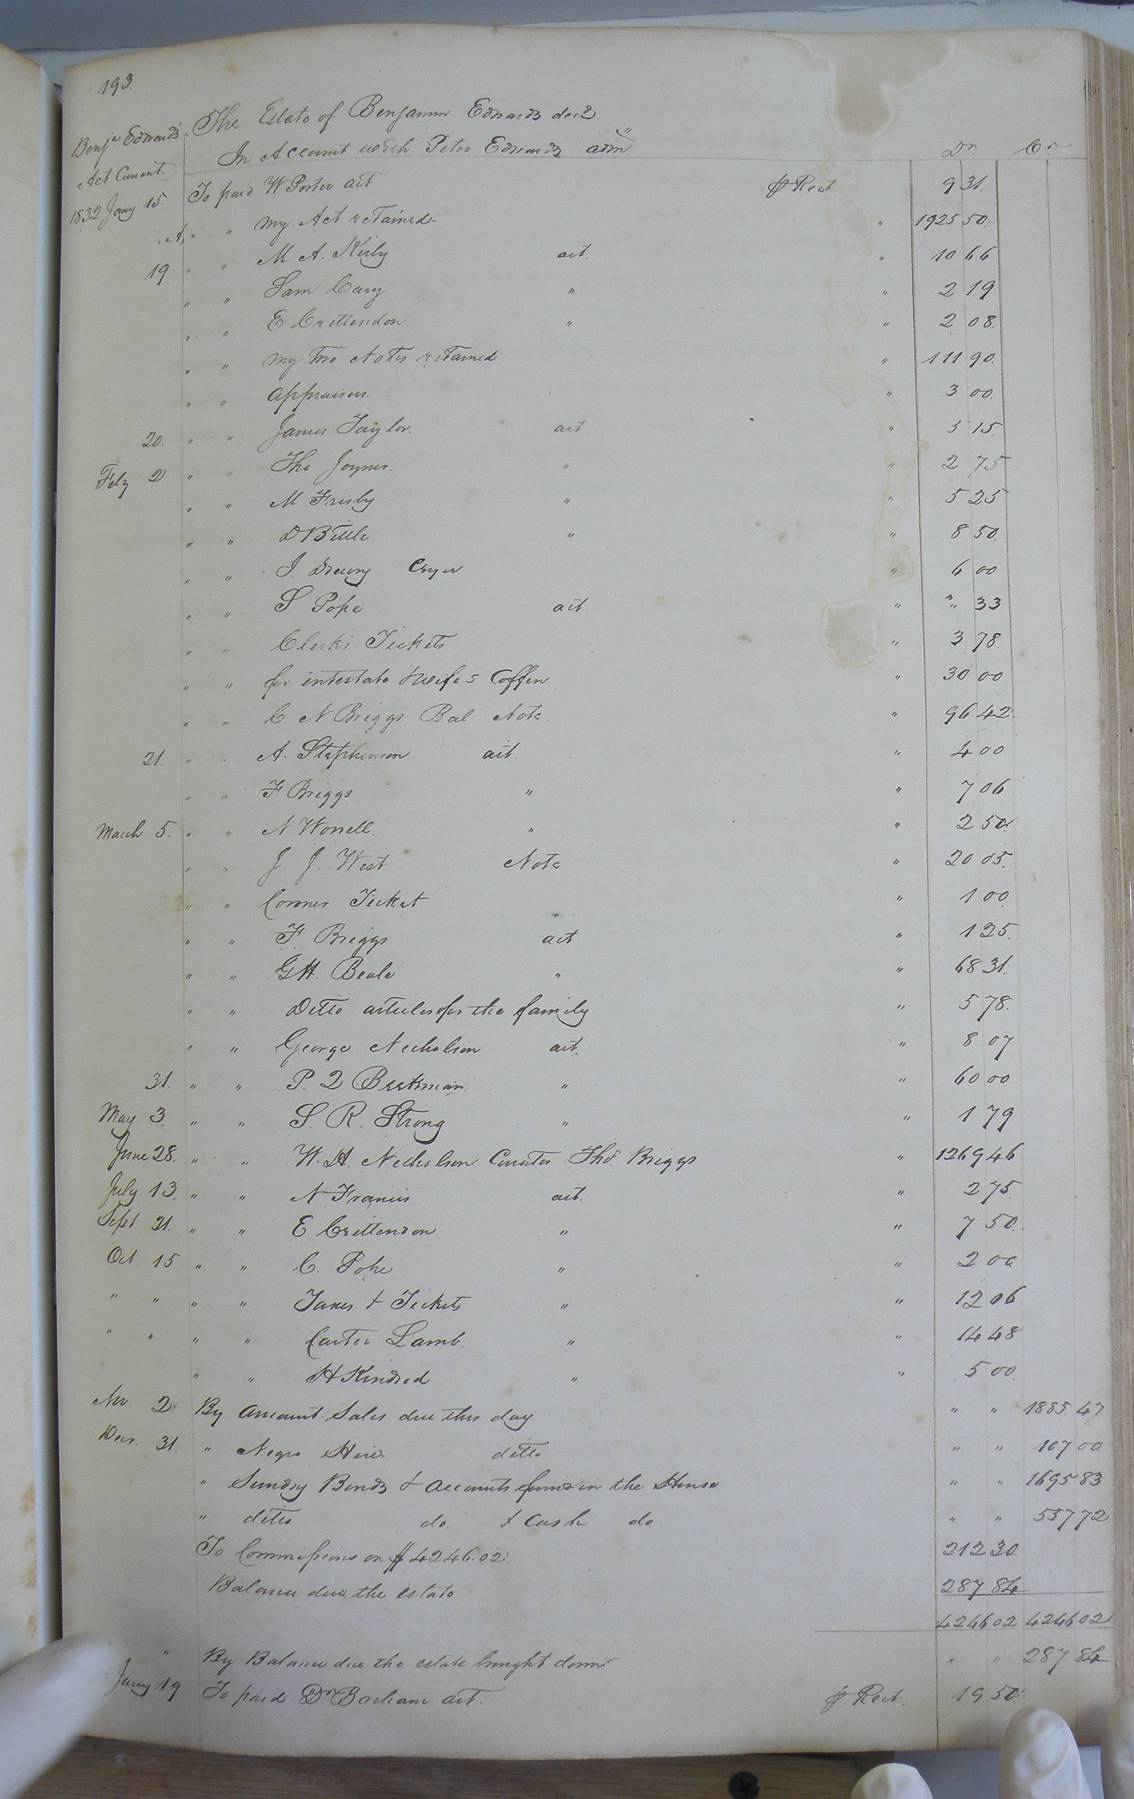 193.
The Estate of Benjamin Edwards decd
Benja Edwards
In Account with Peter Edwards adm Dr Cr
Act Current.
1832 Jany 15 To paid W Porter act pr Rect 9 31.
" " my Act retained " 1925 50.
19 " " M A. Kirby act. " 10 66
" " Sam Cary " " 2 19
" " E Crittendon " " 2 08.
" " my two Notes retained " 111 90.
" " appraisers. " 3 00.
20. " " James Taylor. act. " 5 15.
Feby 2 " " Tho Joyner. " " 2 75
" " M Frisby " " 5 25
" " D Bittle " " 8 50.
" " J. Drewry Cryer " 6 00
" " S Pope act " ".. 33
" " Clerks Tickets " 3 78.
" " for intestate & wife's Coffin " 30 00
" " C N Briggs Bal Note. " 96 42
21. " " A. Stephenson act. " 4 00
" " F Briggs " " 7 06
March 5. " " N Worrell. " " 2 50.
" " J J. West Note " 20 05.
" " Corner Ticket " 1 00.
" " F Briggs act " 1 25.
" " G H. Beale " " 68 31.
" " Ditto articles for the family " 5 78.
" " George Nicholson act. " 8 07
31. " " P. Q Beekman " " 60 00
May 3. " " S. R. Strong " " 1 79
June 28. " " W. A. Nicholson Curator Thos. Briggs " 1269 46
July 13. " " N Francis act. " 2 75.
Sept 21. " " E Crittendon " " 7 50.
Oct 15 " " C. Pope " " 2 00
" " " " Taxes & Tickets " " 12 06
" " " " Carter Lamb. " " 14 48
" " H Kindred " " 5 00.
Nov. 2 By amount Sales due this day " " 1885 47
Decr. 31. " Negro Hire. ditto " " 107 00
" Sundry Bonds & accounts found in the House " " 1695 83
" ditto do. & Cash do " " 557 72
To Commissions on $ 4246.02 212 30.
Balance due the estate 287 84
4246 02 4246 02
" By Balance due the estate brought down " " 287 84
Jany 19 To paid Dr Barham act. pr Rect. 19 50.